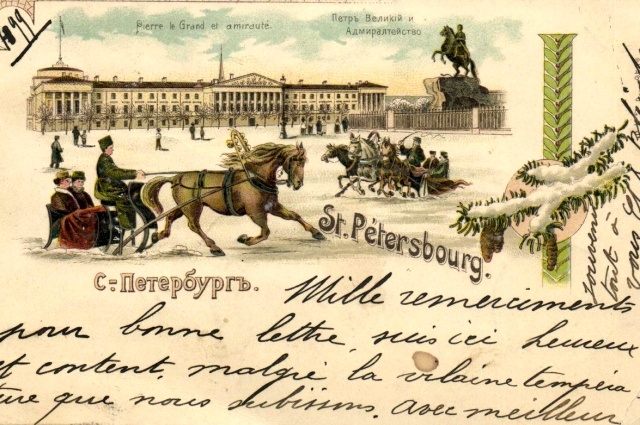 Pierre le Grand et amirauté.
Петръ Великій и
Адмиралтейство
St. Pétersbourg.
С.-Петербургъ.
Mille remerciments
pour bonne lettre, suis ici heureux
et content, malgré la vilaine tempéra
ture que nous subissons. Avec meilleur
souvenir
tout à
vous